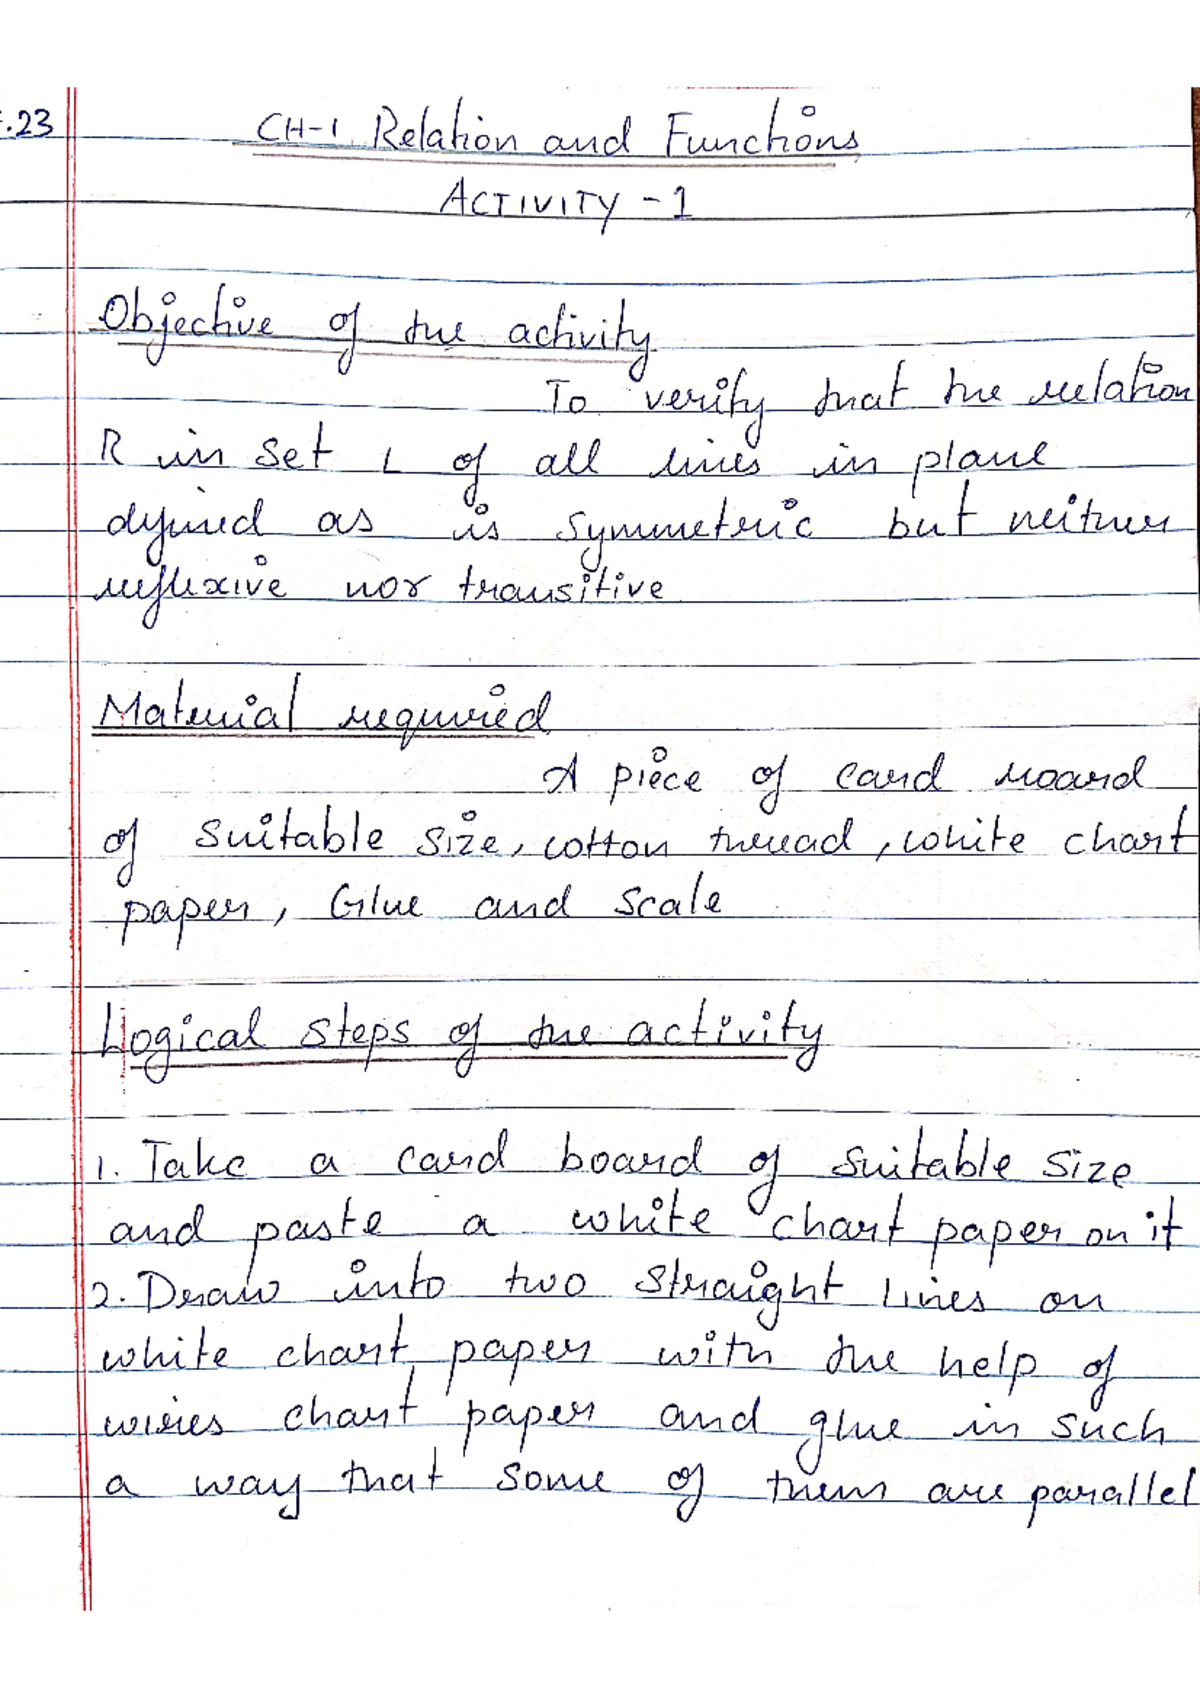 .23
CH-1 Relation and Functions
ACTIVITY - 1
Objective of the activity
To verify that the relation
R in set L of all lines in plane
defined as is symmetric but neither
reflexive nor transitive
Material required
A piece of card moard
of suitable size, cotton thread, white chart
paper, Glue and scale
Logical steps of the activity
1. Take a card board of suitable size
and paste a white chart paper on it
2. Draw into two straight lines on
white chart paper with the help of
wires chart paper and glue in such
a way that some of them are parallel